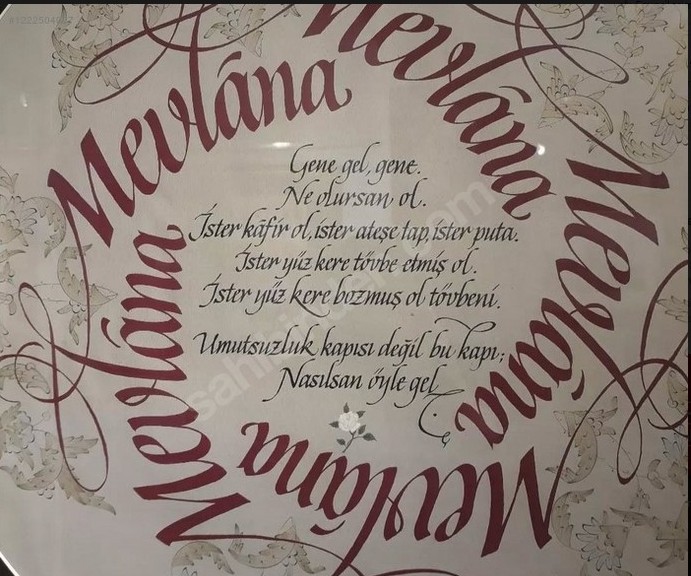 Mevlâna
Mevlâna
Mevlâna
Mevlâna
Mevlâna
Gene gel, gene.
Ne olursan ol.
İster kâfir ol, ister ateşe tap, ister puta.
İster yüz kere tövbe etmiş ol.
İster yüz kere bozmuş ol tövbeni.
Umutsuzluk kapısı değil bu kapı;
Nasılsan öyle gel
sahibinden.com